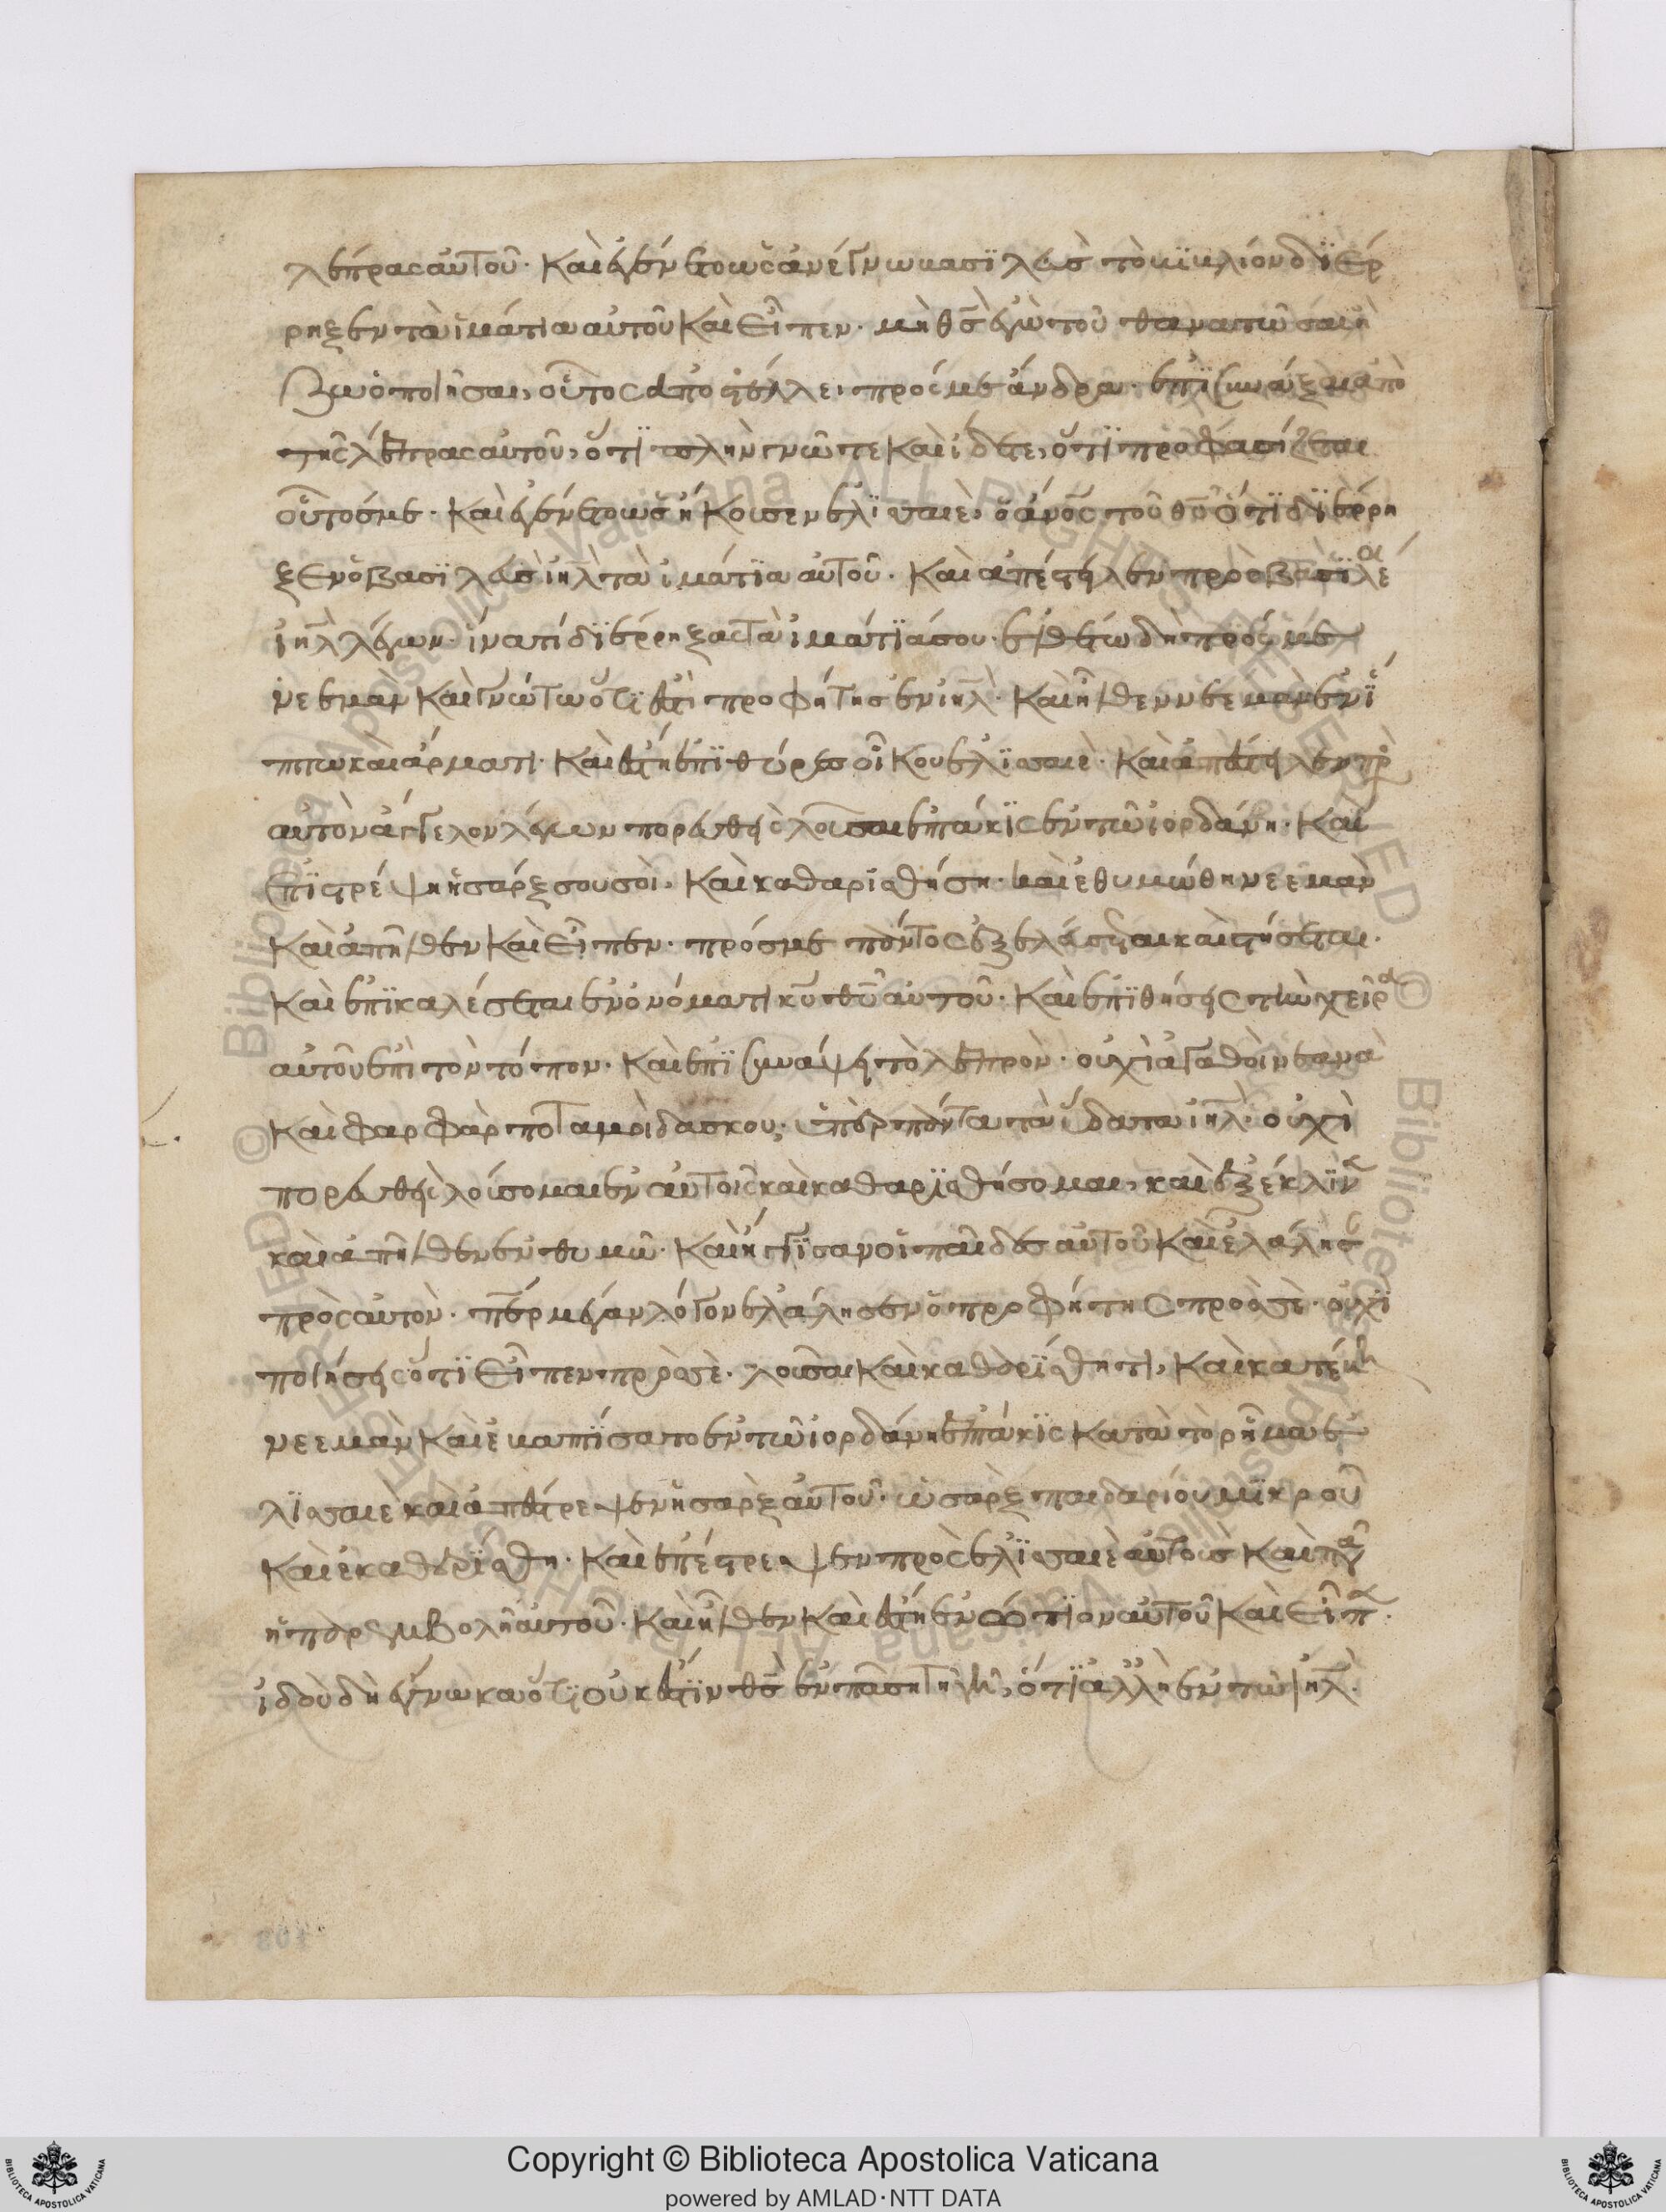 λέπρας αὐτοῦ· καὶ ἐγένετο ὡς ἀνέγνω βασϊλεὺς τὸ βϊβλίον διέρ
ρηξεν τὰ ἱμάτια αὐτοῦ καὶ εἶπεν· μὴ θς ἐγὼ τοῦ θανατῶσαι ἢ
ζωοποιῆσαι, οὗτος ἀποστέλλει πρός με ἄνδρα ἐπϊσυνάξαι ἀπὸ
τῆς λέπρας αὐτοῦ, ὅτϊ πλὴν γνῶτε καὶ ἴδετε, ὅτϊ προφασίζεται
οὗτός με· καὶ ἐγένετο ὡς ἤκουσεν ἐλϊσαιὲ ὁ ἄνος τοῦ θυ ὅτϊ διέρρη
ξεν ὁ βασϊλεὺς ιηλ τὰ ἱμάτϊα αὐτοῦ· καὶ ἀπέστειλεν πρὸς βασϊλέα
ιηλ λέγων· ἱνατί διέρρηξας τὰ ἱμάτϊά σου· ἐλθέτω δὴ πρός με
νεεμὰν καὶ γνώτω ὅτι ἐστὶ προφήτης ἐν ιηλ· καὶ ἦλθεν νεεμὰν ἐν ἵ
ππω καὶ ἅρματι· καὶ ἔστη ἐπϊ θύρας οἴκου ἐλϊσαιὲ· καὶ ἀπέστειλεν πρ
αὐτὸν ἄγγελον λέγων πορευθεὶς λοῦσαι ἑπτάκϊς ἐν τῶ ἰορδάνη· καὶ
ἐπϊστρέψη ἡ σάρξ σου σοὶ, καὶ καθαρισθήση· καὶ ἐθυμώθη νεεμὰν
καὶ ἀπῆλθεν καὶ εἶπεν· πρός με πάντος ἐξελεύσεται καὶ στήσεται.
καὶ ἐπϊκαλέσεται ἐν ὀνόματι κυ θυ αὐτοῦ· καὶ ἐπϊθήσει τὴν χεῖρα
αὐτοῦ ἐπὶ τὸν τόπον· καὶ ἐπϊσυνάψει τὸ λεπρὸν· οὐχὶ ἀγαθοὶ νεανὰ
καὶ φαρφὰρ ποταμοὶ δασκου, ὑπὲρ πάντα τὰ ὕδατα ιηλ· οὐχὶ
πορευθεὶς λούσομαι ἐν αὐτοῖς καὶ καθαρϊσθήσομαι, καὶ ἐξέκλϊνε
καὶ ἀπῆλθεν ἐν θυμῶ· καὶ ἤγγϊσαν οἱ παῖδες αὐτοῦ καὶ ἐλάλησ
πρὸς αὐτὸν· περ μέγαν λόγον ἐλάλησεν ὁ προφήτης πρὸς σὲ· οὐχϊ
ποιήσεις ὅτϊ εἶπεν πρὸς σὲ· λοῦσαι καὶ καθαρίσθητι, καὶ κατέβη
νεεμὰν καὶ ἐβαπτίσατο ἐν τῶ ἰορδάνη ἑπτάκϊς κατὰ τὸ ρῆμα ἐ
λϊσαιὲ καὶ ἀπέστρεψεν ἡ σὰρξ αὐτοῦ· ὡς σὰρξ παιδαρίου μϊκροῦ
καὶ ἐκαθαρϊσθη· καὶ ἐπέστρεψεν πρὸς ἐλϊσαιὲ αὐτὸς καὶ πᾶσα
ἡ παρεμβολὴ αὐτοῦ· καὶ ἦλθεν καὶ ἔστη ἐνώπϊον αὐτοῦ καὶ εἶπε.
ἰδοὺ δὴ ἔγνωκα ὅτι οὐκ ἔστϊν θς ἐν πάση τῆ γῆ, ὅτϊ ἀλλ ἢ ἐν τῶ ιηλ.